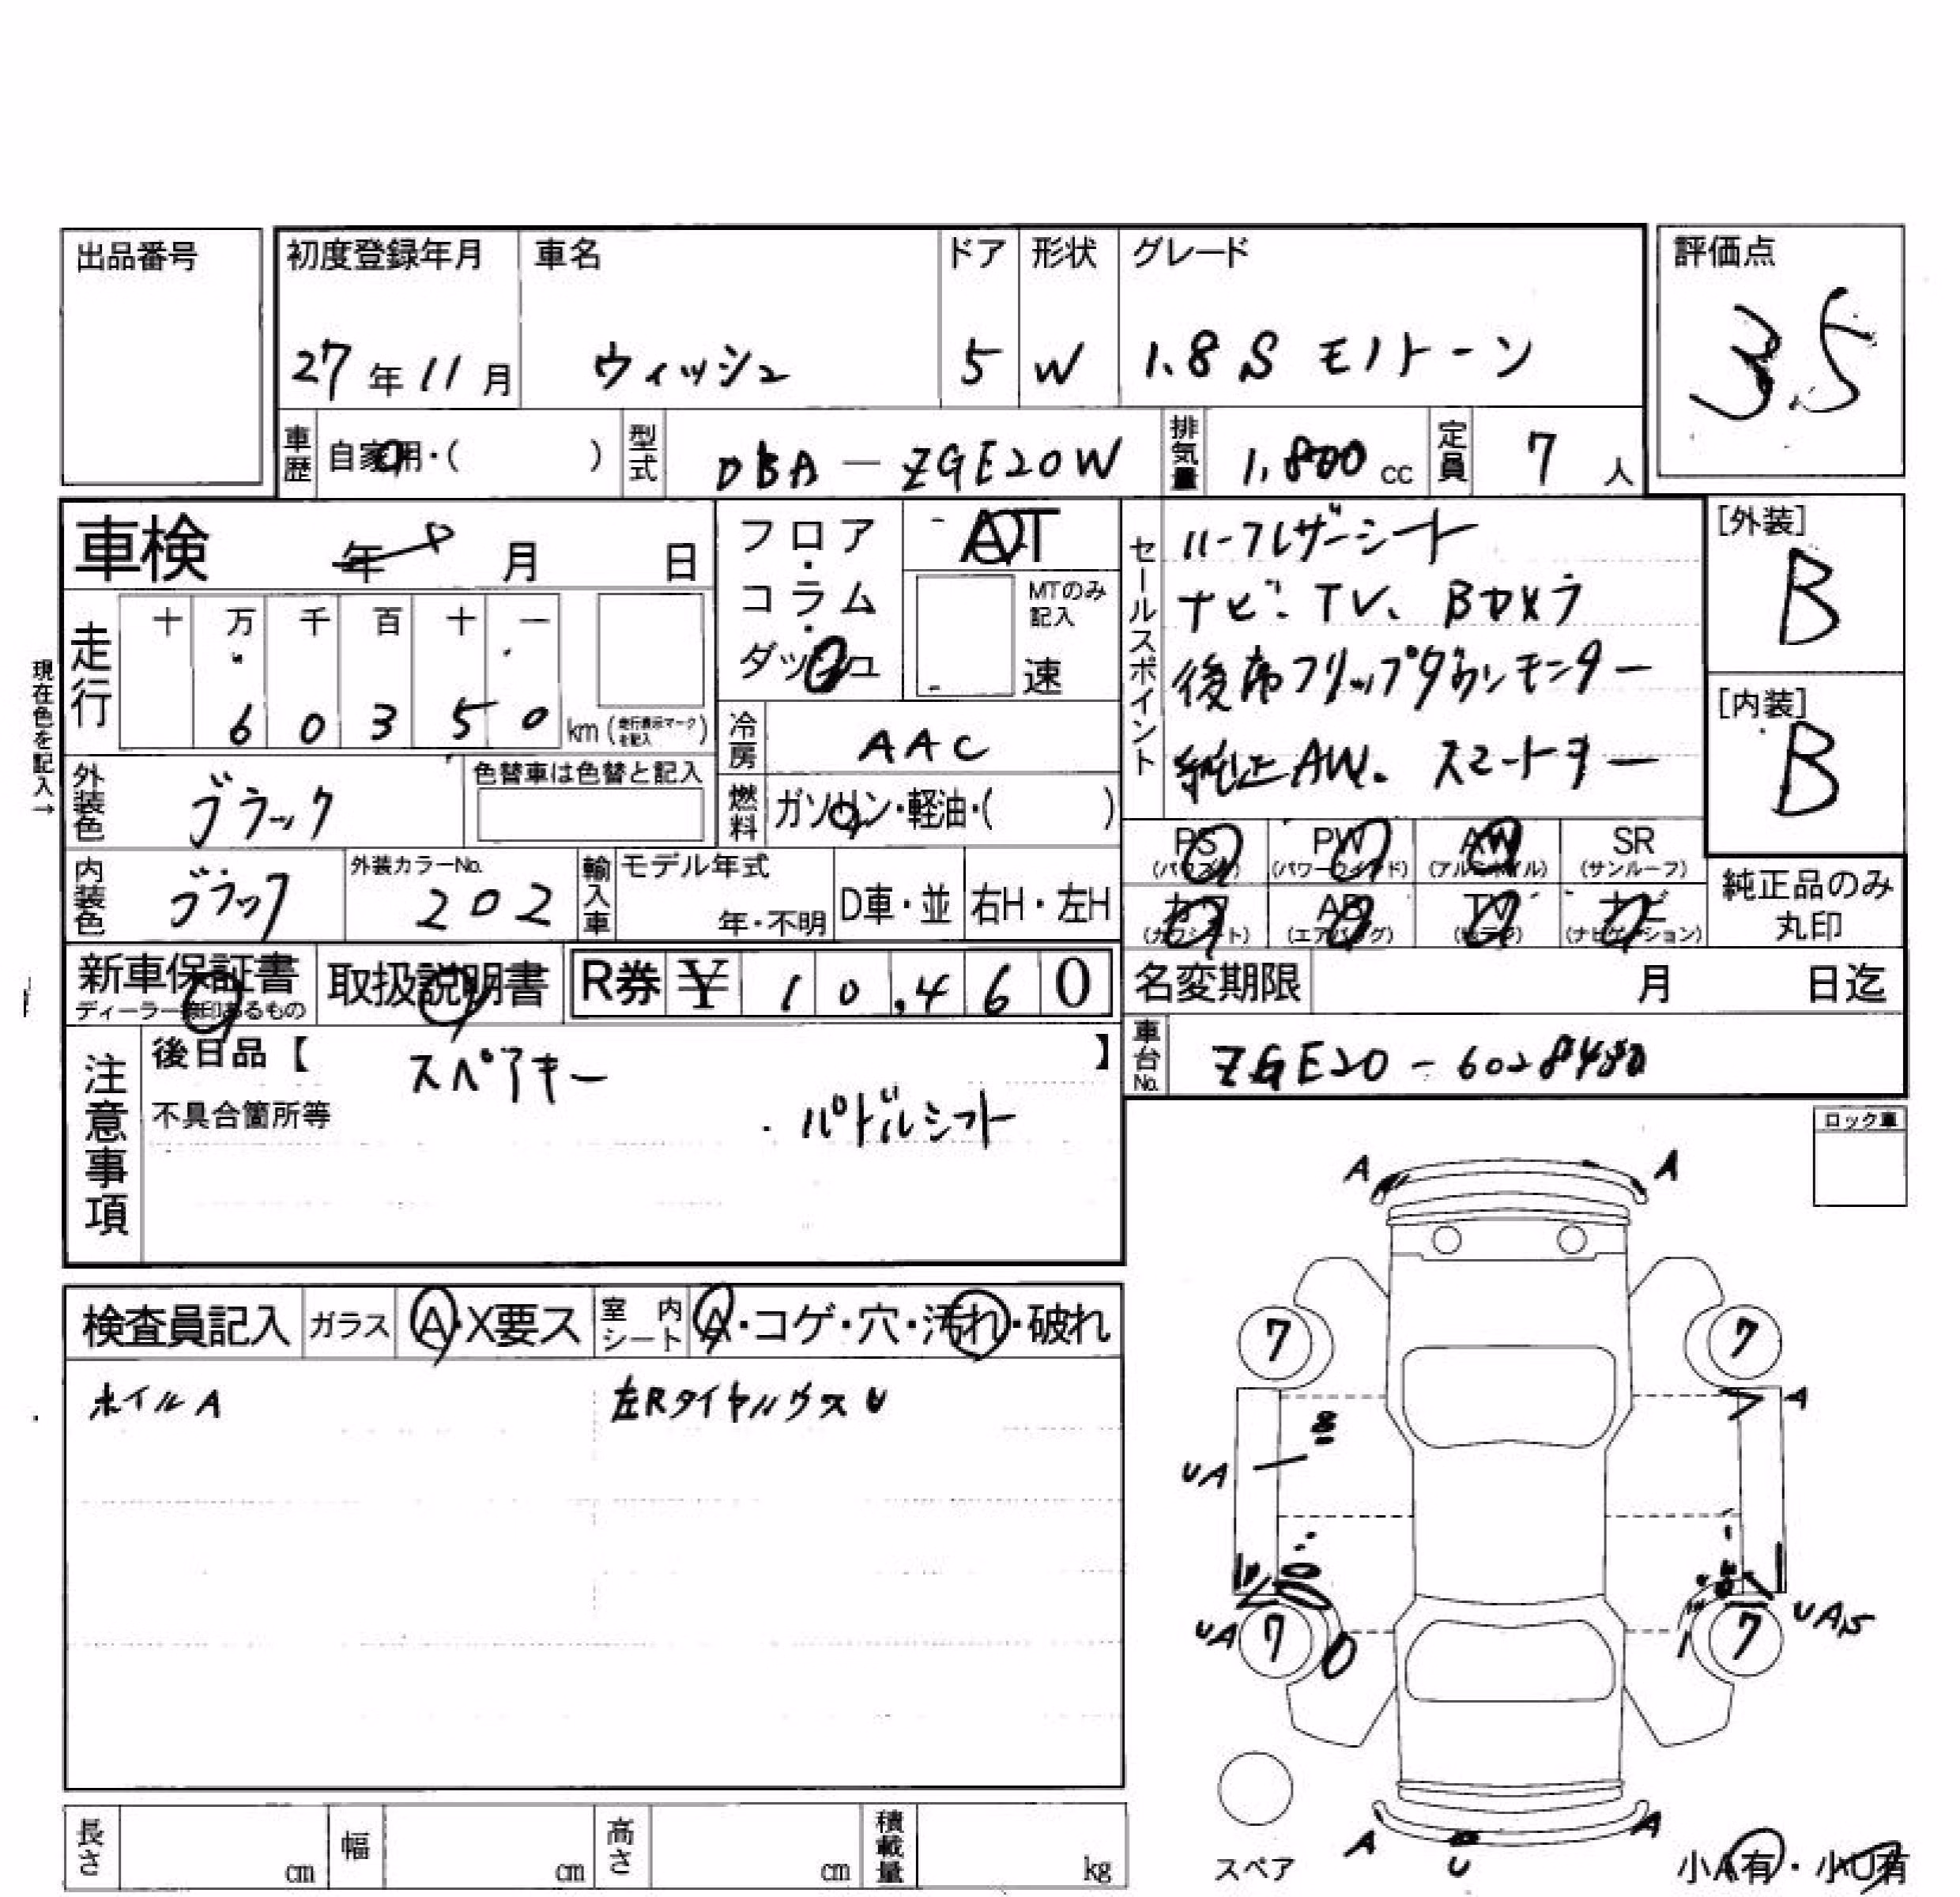 出品番号
初度登録年月 車名 ドア 形状 グレード 評価点
27年11月 ウィッシュ 5 W 1.8 S モノトーン 3.5
車歴 自家用・( ) 型式 DBA-ZGE20W 排気量 1,800 cc 定員 7人
車検 年 月 日
フロア・コラム・ダッシュ AT
MTのみ記入 速
セールスポイント
ハーフレザーシート
ナビ.TV、Bカメラ
後席フリップダウンモニター
純正AW. スマートキー
[外装] B
[内装] B
現在色を記入→
走行 十 万 千 百 十 一
6 0 3 5 0 km (走行表示マークを記入)
冷房 AAC
燃料 ガソリン・軽油・( )
外装色 ブラック 色替車は色替と記入
内装色 ブラック 外装カラーNo. 202
輸入車 モデル年式 年・不明 D車・並 右H・左H
PS (パワステ) PW (パワーウインド) AW (アルミホイル) SR (サンルーフ)
カワ (カワシート) AB (エアバッグ) TV (テレビ) ナビ (ナビゲーション)
純正品のみ丸印
新車保証書 取扱説明書 R券 ¥ 10,460
名変期限 月 日迄
車台No. ZGE20-6028480
注意事項
後日品【 スペアキー 】
不具合箇所等 ・パドルシフト
ロック車
検査員記入 ガラス A・X要ス 室内シート A・コゲ・穴・汚れ・破れ
ホイルA 左RタイヤハウスU
A A
7 7
A
UA
UA 7 7 UA15
A U A
スペア
小A有・小U有
長さ cm 幅 cm 高さ cm 積載量 kg